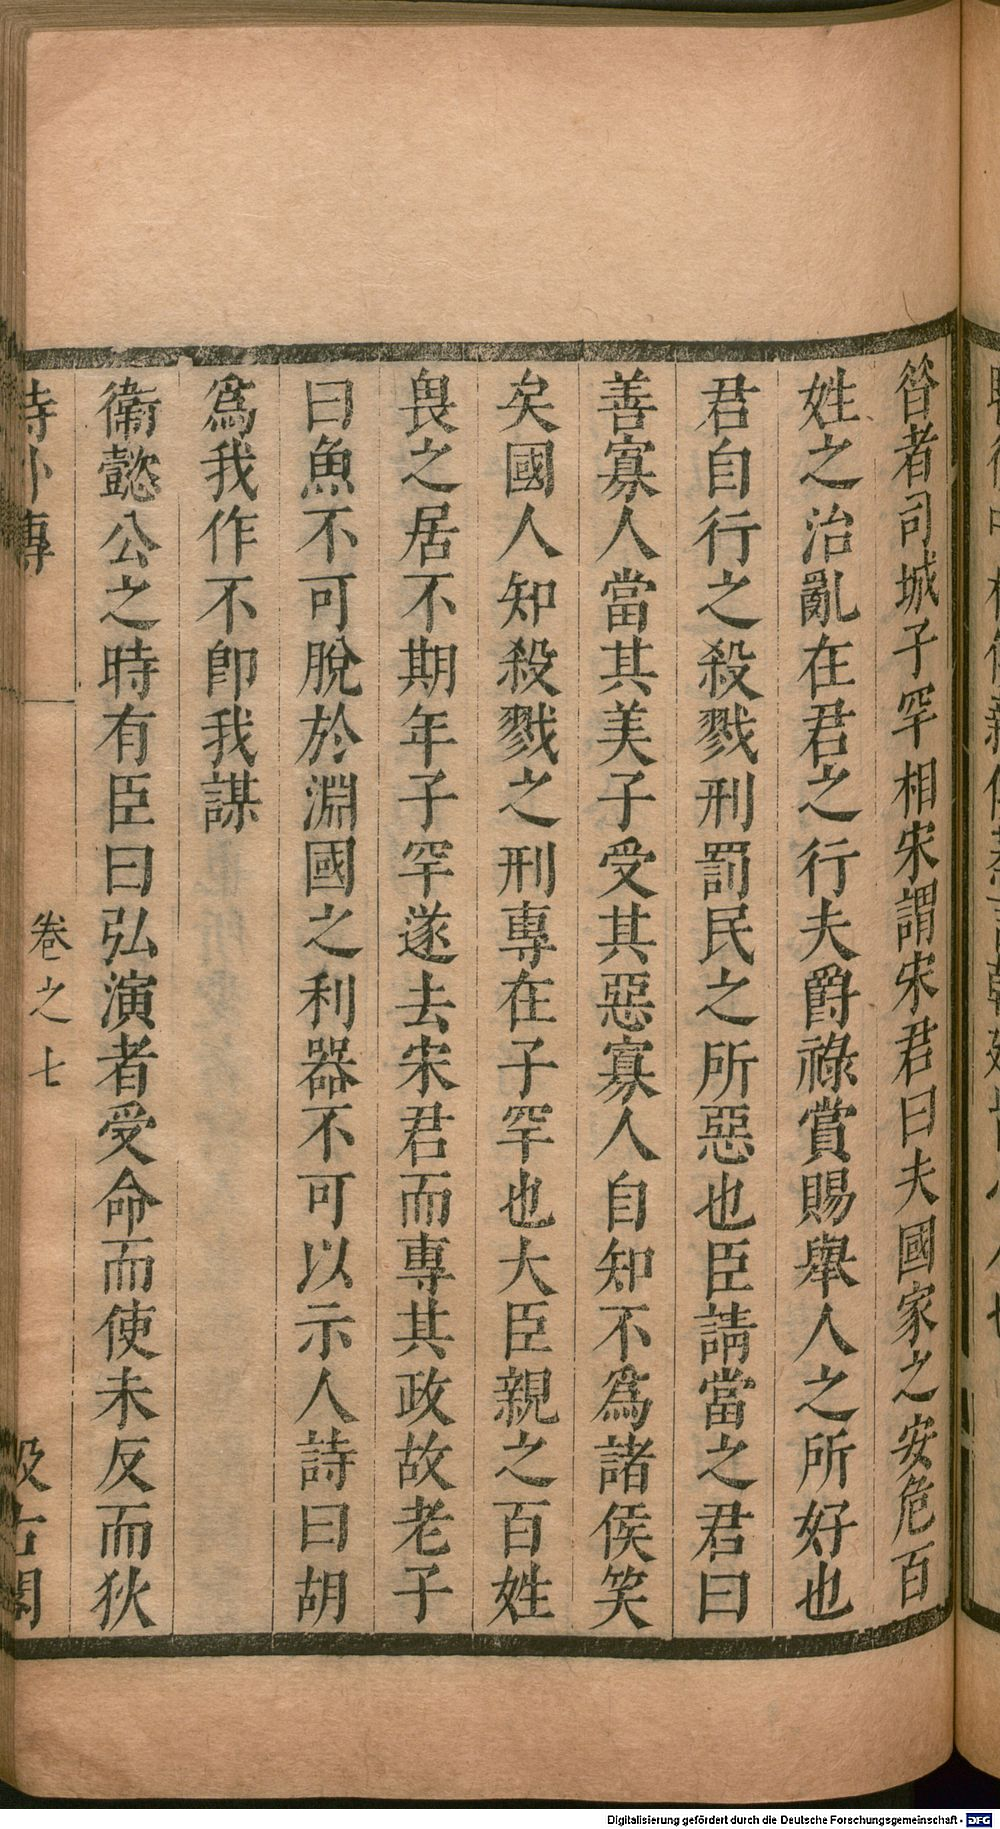 昝者司城子罕相宋謂宋君曰夫國家之安危百
姓之治亂在君之行夫爵祿賞賜舉人之所好也
君自行之殺戮刑罰民之所惡也臣請當之君曰
善寡人當其美子受其惡寡人自知不爲諸侯笑
矣國人知殺戮之刑專在子罕也大臣親之百姓
畏之居不期年子罕遂去宋君而專其政故老子
曰魚不可脫於淵國之利器不可以示人詩曰胡
爲我作不卽我謀
衞懿公之時有臣曰弘演者受命而使未反而狄
詩外傳 卷之七 汲古閣
Digitalisierung gefördert durch die Deutsche Forschungsgemeinschaft - DFG